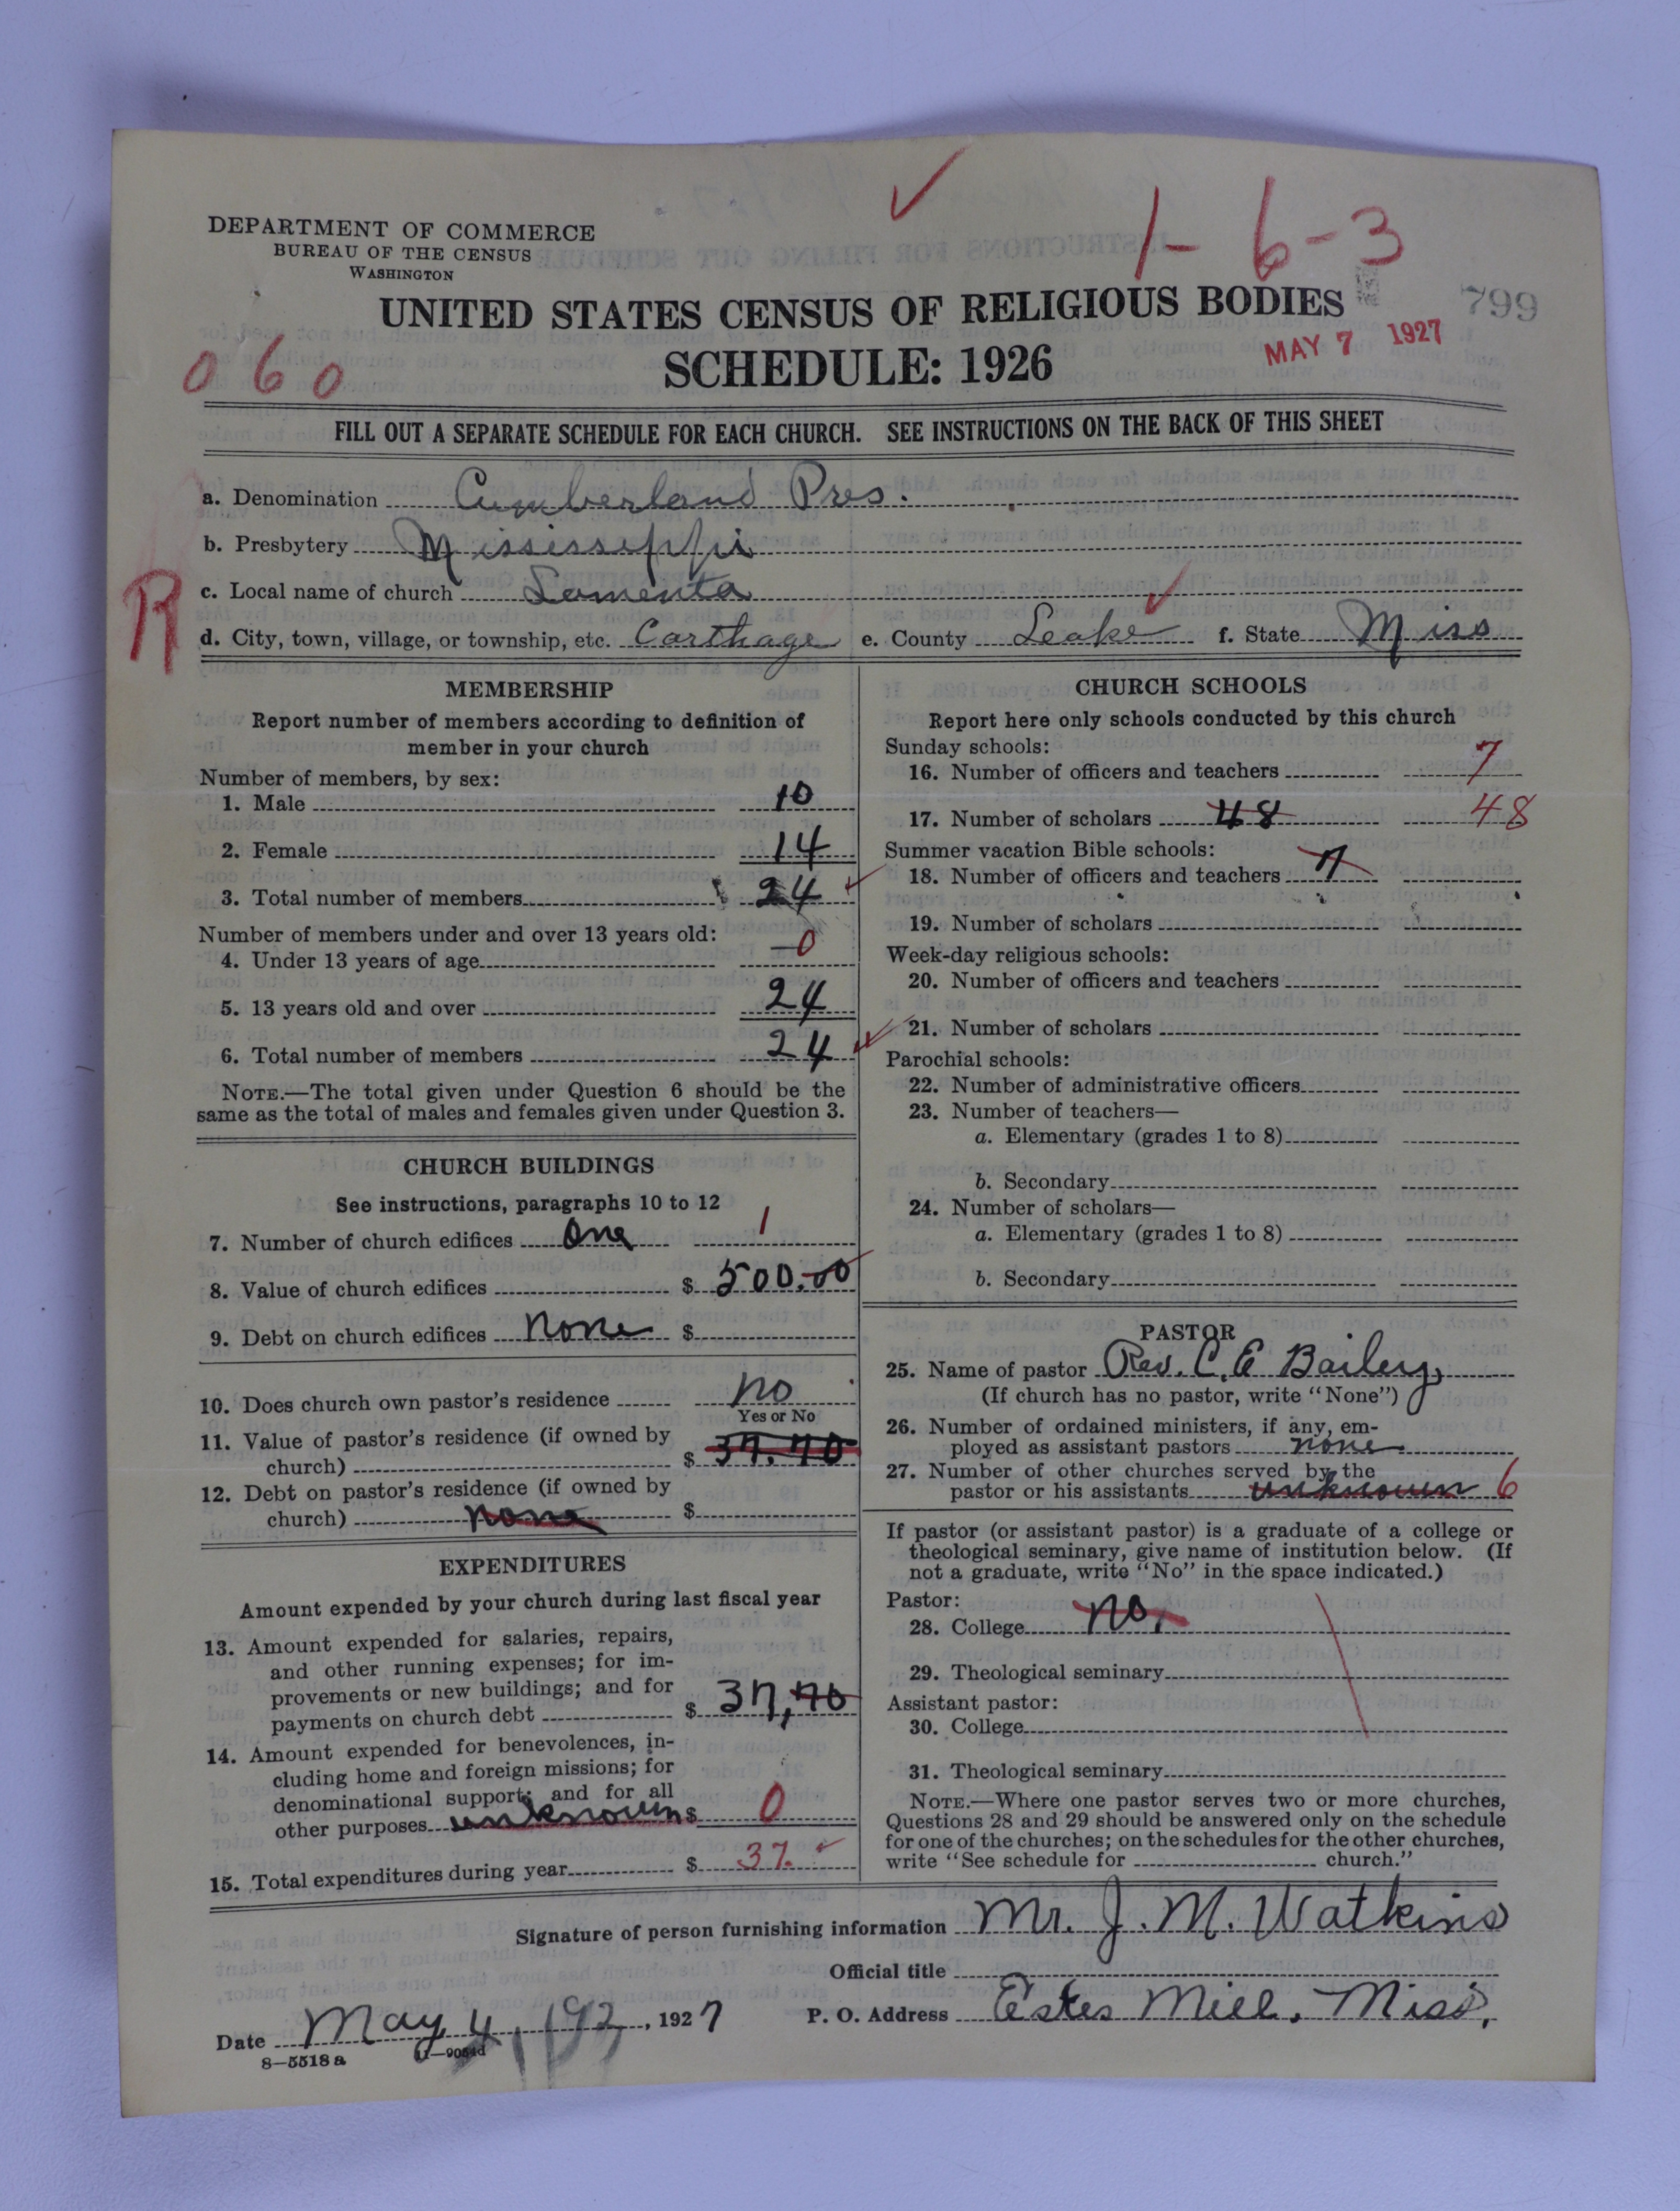 1-6-3
DEPARTMENT OF COMMERCE
BUREAU OF THE CENSUS
WASHINGTON
UNITED STATES CENSUS OF RELIGIOUS BODIES
799
SCHEDULE: 1926
MAY 7 1927
060
FILL OUT A SEPARATE SCHEDULE FOR EACH CHURCH. SEE INSTRUCTIONS ON THE BACK OF THIS SHEET
a. Denomination Cumberland Pres.
b. Presbytery Mississeppi
R
c. Local name of church Lamenta
d. City, town, village, or township, etc. Carthage e. County Leake f. State Miss
MEMBERSHIP
Report number of members according to definition of
member in your church
Number of members, by sex:
1. Male 10
2. Female 14
3. Total number of members 24
Number of members under and over 13 years old:
4. Under 13 years of age 0
5. 13 years old and over 24
6. Total number of members 24
NOTE.—The total given under Question 6 should be the
same as the total of males and females given under Question 3.
CHURCH BUILDINGS
See instructions, paragraphs 10 to 12
7. Number of church edifices One 1
8. Value of church edifices $ 500.00
9. Debt on church edifices None $
10. Does church own pastor's residence no
Yes or No
11. Value of pastor's residence (if owned by
church) $ 37.70
12. Debt on pastor's residence (if owned by
church) none $
EXPENDITURES
Amount expended by your church during last fiscal year
13. Amount expended for salaries, repairs,
and other running expenses; for im-
provements or new buildings; and for
payments on church debt $ 37,70
14. Amount expended for benevolences, in-
cluding home and foreign missions; for
denominational support; and for all
other purposes unknown $ 0
15. Total expenditures during year $ 37.
CHURCH SCHOOLS
Report here only schools conducted by this church
Sunday schools:
16. Number of officers and teachers 7
17. Number of scholars 48 48
Summer vacation Bible schools:
18. Number of officers and teachers 7
19. Number of scholars
Week-day religious schools:
20. Number of officers and teachers
21. Number of scholars
Parochial schools:
22. Number of administrative officers
23. Number of teachers—
a. Elementary (grades 1 to 8)
b. Secondary
24. Number of scholars—
a. Elementary (grades 1 to 8)
b. Secondary
PASTOR
25. Name of pastor Rev. C. E Bailey,
(If church has no pastor, write "None")
26. Number of ordained ministers, if any, em-
ployed as assistant pastors none
27. Number of other churches served by the
pastor or his assistants unknown 6
If pastor (or assistant pastor) is a graduate of a college or
theological seminary, give name of institution below. (If
not a graduate, write "No" in the space indicated.)
Pastor:
28. College no,
29. Theological seminary
Assistant pastor:
30. College
31. Theological seminary
NOTE.—Where one pastor serves two or more churches,
Questions 28 and 29 should be answered only on the schedule
for one of the churches; on the schedules for the other churches,
write "See schedule for church."
Signature of person furnishing information Mr. J. M. Watkins
Official title
Date May 4, 192, 1927 P. O. Address Estes Mill, Miss,
8—5518a